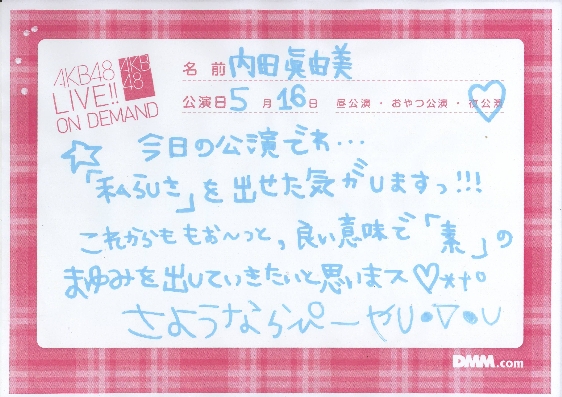 AKB48
LIVE!!
ON DEMAND
AKB
48
名前 内田眞由美
公演日 5月16日 昼公演・おやつ公演・夜公演
☆ 今日の公演でわ…
「私らしさ」を出せた気がしますっ!!!
これからももお〜っと,良い意味で「素」の
まゆみを出していきたいと思いまス♡*+°
さようならぴーやU•▽•U
DMM.com